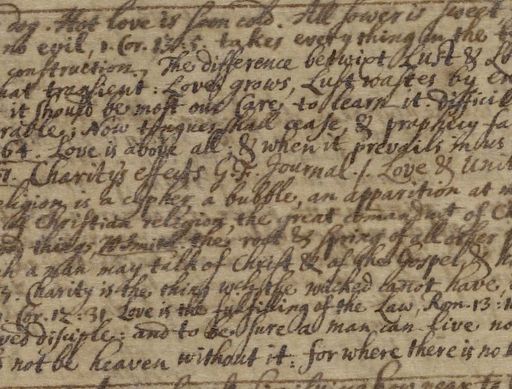 dog. Hot love is soon cold. All sower is sweet,
no evil, 1. Cor. 13.5. takes every thing in the
construction. The difference betwixt Lust & Lo
hat transient: Love grows, Lust wastes by en
it should be most our care to learn it. difficil
rable; Now tongues shall cease, & prophicy fa
64. Love is above all: & when it prevails in us
Charity's effects G. F. Journal. Love & Unit
eligion is a cypher, a bubble, an apparition at
Christian religion, the great comandmt of C
the root & spring of all other
h a man may talk of Christ & of the Gospel, &
5. Charity is the thing wch the wicked canot have,
Cor. 12.31. Love is the fulfilling of the Law, Rom. 13:1
oved disciple: and to be sure a man can live no
s not be heaven without it: for where there is no